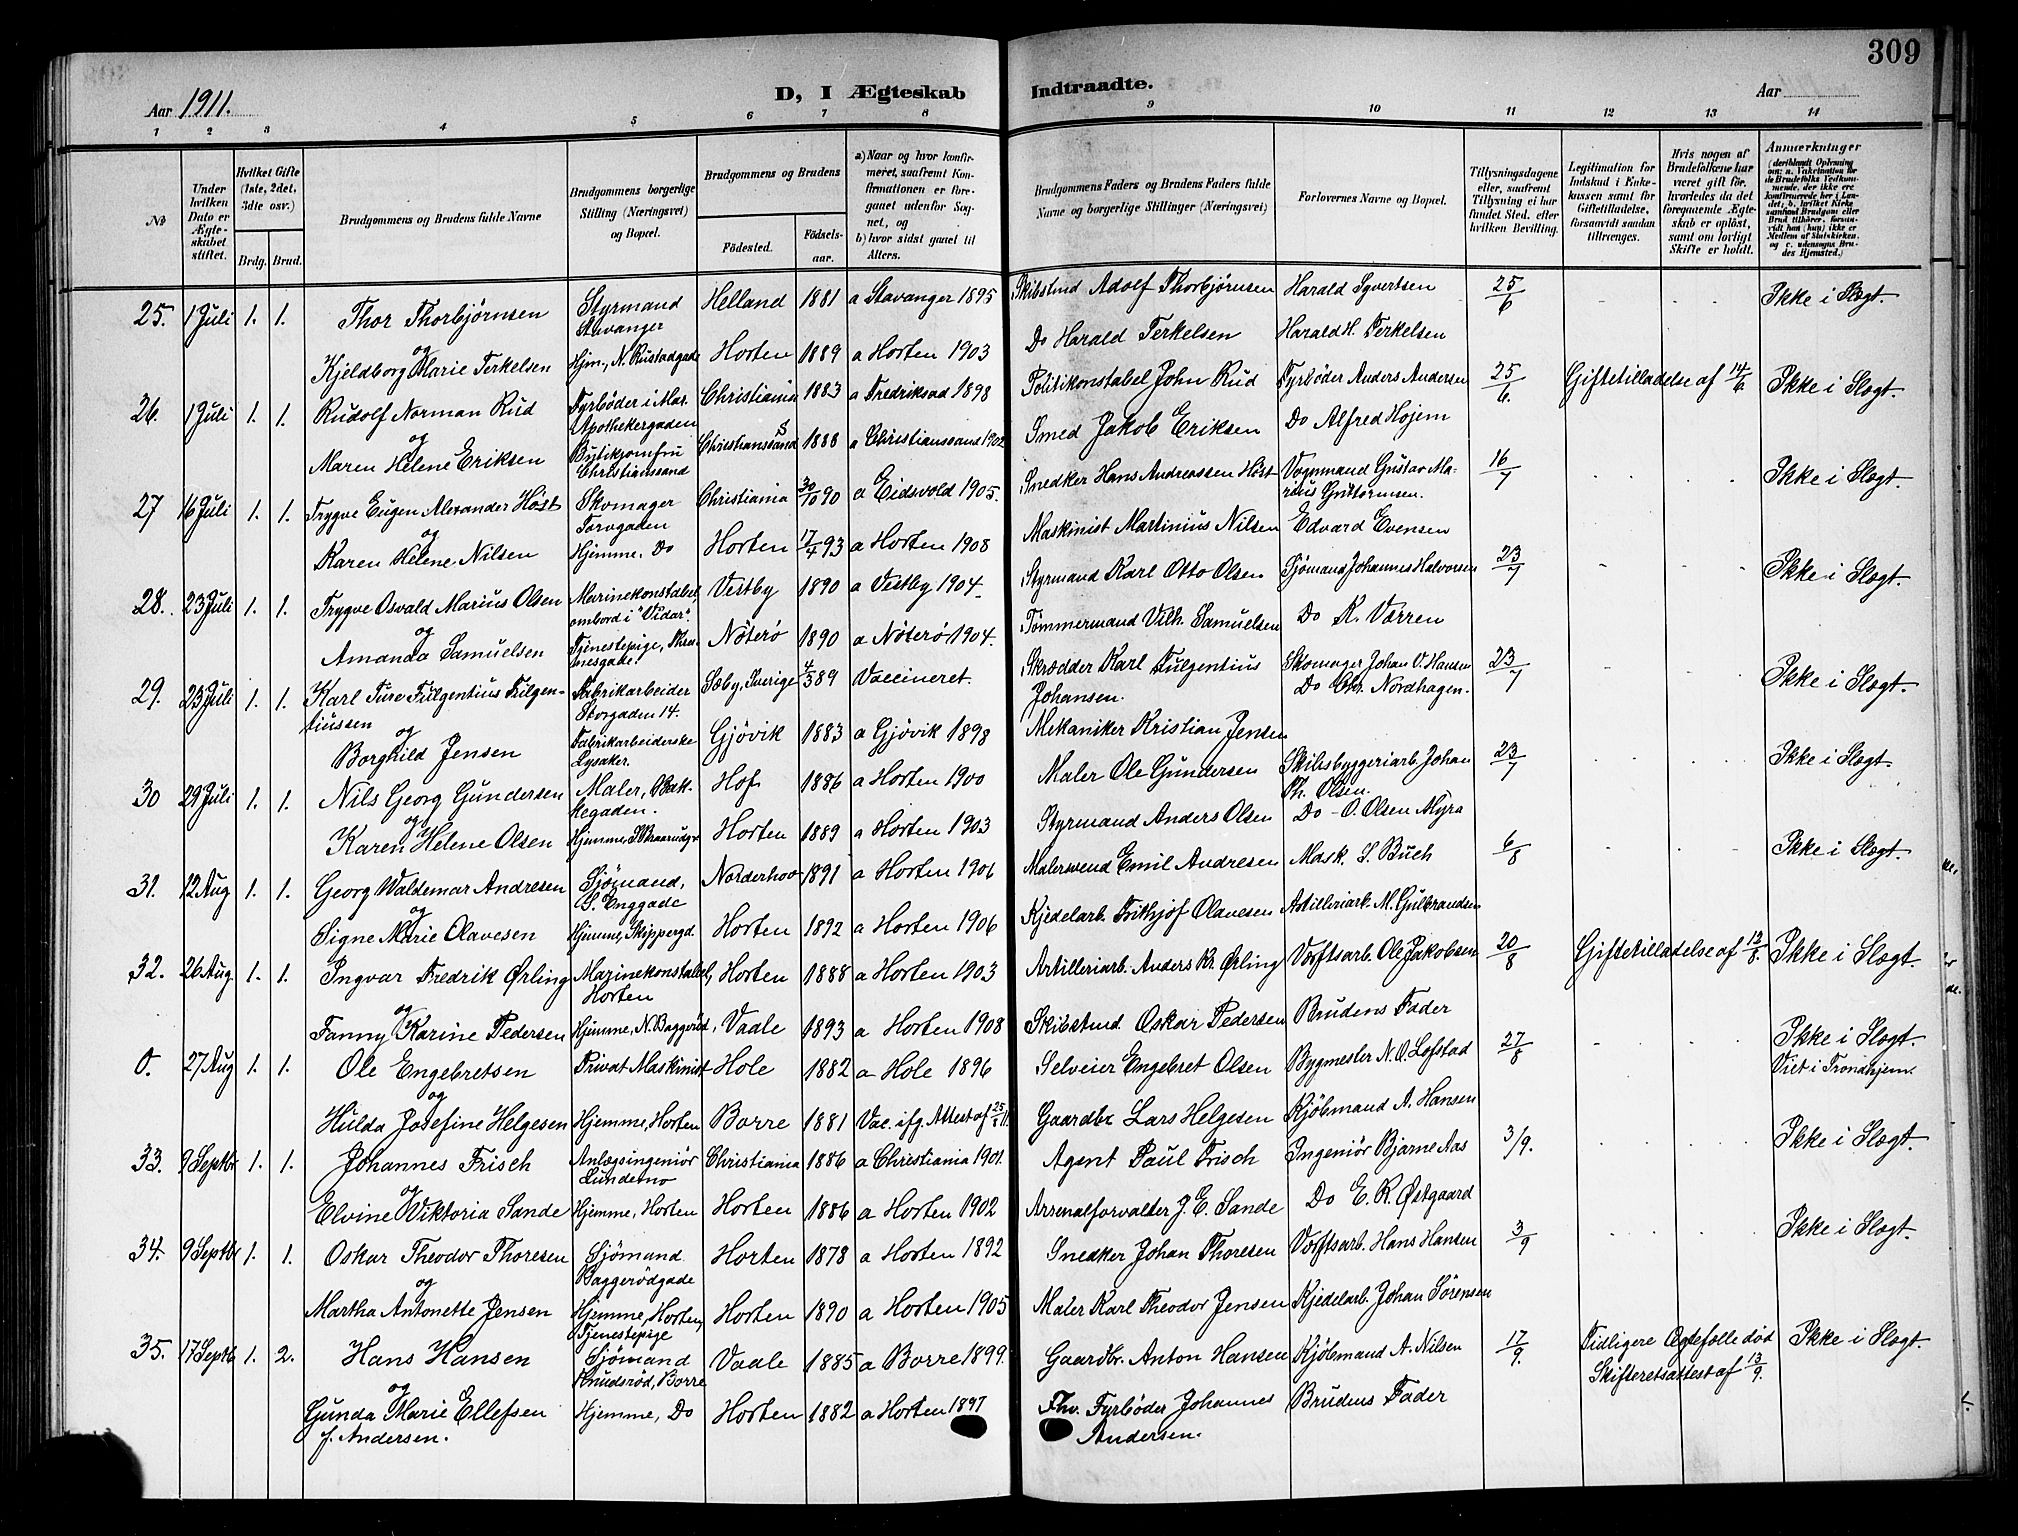 309
Aar 1911.
D, I Ægteskab Indtraadte.
Aar
1 2 3 4 5 6 7 8 9 10 11 12 13 14
No
Under hvilken Dato er Ægteskabet stiftet.
Hvilket Gifte (1ste, 2det, 3die osv.)
Brdg. Brud.
Brudgommens og Brudens fulde Navne
Brudgommens borgerlige Stilling (Næringsvei) og Bopæl.
Brudgommens og Brudens
Födested. Födselsaar.
a) Naar og hvor konfirmeret, saafremt Konfirmationen er foregaaet udenfor Sognet, og
b) hvor sidst gaaet til Alters.
Brudgommens Faders og Brudens Faders fulde Navne og borgerlige Stillinger (Næringsvei)
Forlovernes Navne og Bopæl.
Tillysningsdagene eller, saafremt Tillysning ei har fundet Sted, efter hvilken Bevilling.
Legitimation for Indskud i Enkekassen samt for Giftetilladelse, forsaavidt saadan tiltrænges.
Hvis nogen af Brudefolkene har været gift för, hvorledes da det foregaaende Ægteskab er oplöst, samt om lovligt Skifte er holdt.
Anmærkninger
25. 1 Juli 1. 1. Thor Thorbjørnsen Styrmand Stavanger Helland 1881 a Stavanger 1895 Skibstmd Adolf Thorbjørnsen Harald Syvertsen 25/6 Ikke i Slægt.
og Kjeldborg Marie Terkelsen Hjm., N. Rustadgade Horten 1889 a Horten 1903 Do Harald Terkelsen Harald H. Terkelsen
26. 1 Juli 1. 1. Rudolf Norman Rud Fyrbøder i Mar. Apothekergaden Christiania 1883 a Fredriksad 1898 Politikonstabel John Rud Fyrbøder Anders Andersen 25/6. Giftetilladelse af 14/6. Ikke i Slægt.
og Maren Helene Eriksen Butikjomfru Christianssand Christianssand S 1888 a Christianssand 1902 Smed Jakob Eriksen Do Alfred Højem
27 16 Juli 1. 1. Trygve Eugen Alexander Høst Skomager Torvgaden Christiania 30/10 90 a Eidsvold 1905. Snedker Hans Andreassen Høst Vognmand Gustav Marius Guttormsen. 16/7 Ikke i Slægt.
og Karen Helene Nilsen Hjemme, Do Horten 17/4 93 a Horten 1908 Maskinist Martinius Nilsen Edvard Evensen
28. 23 Juli 1. 1. Trygve Osvald Marius Olsen Marinekonstabel ombord i "Vidar". Vestby 1890 a Vestby 1904. Styrmand Karl Otto Olsen Sjømand Johannes Halvorsen 23/7 Ikke i Slægt.
og Amanda Samuelsen Tjenestepige, Thranesgade. Nøterø 1890 a Nøterø 1904. Tømmermand Vilh. Samuelsen Do K. Varren
29. 23 Juli 1. 1. Karl Ture Fulgentius Fulgentiussen Fabrikarbeider Storgaden 14. Sæby, Sverige 4/3 89 Vaccineret. Skrædder Karl Fulgentius Johansen. Skomager Johan O. Hansen 23/7 Ikke i Slægt.
og Borghild Jensen Fabrikarbeiderske Lysaker. Gjøvik 1883 a Gjøvik 1898 Mekaniker Kristian Jensen Do Chr. Nordhagen.
30 29 Juli 1. 1. Nils Georg Gundersen Maler, Bakkegaden. Hof 1886 a Horten 1900 Maler Ole Gundersen Skibsbyggeriarb. Johan Th. Olsen. 23/7 Ikke i Slægt.
og Karen Helene Olsen Hjemme, S. Braarudg. Horten 1889 a Horten 1903 Styrmand Anders Olsen Do - O. Olsen Myra
31. 12 Aug 1. 1. Georg Waldemar Andresen Sjømand, S. Enggade Norderhov 1891 a Horten 1906 Malersvend Emil Andresen Mask. S. Buch 6/8 Ikke i Slægt.
og Signe Marie Olavesen Hjemme, Skippergd. Horten 1892 a Horten 1906 Kjedelarb. Frithjof Olavesen Artilleriarb. M. Gulbrandsen
32. 26 Aug. 1. 1. Ingvar Fredrik Ørling Marinekonstabel, Horten Horten 1888 a Horten 1903 Artilleriarb. Anders Kr. Ørling Værftsarb. Ole Jakobsen 20/8 Giftetilladelse af 12/8. Ikke i Slægt.
og Fanny Karine Pedersen Hjemme, N. Baggerød, Vaale 1893 a Horten 1908 Skibstmd. Oskar Pedersen Brudens Fader
0. 27 Aug 1. 1. Ole Engebretsen Privat Maskinist Hole 1882 a Hole 1896 Selveier Engebret Olsen Bygmester N. O. Lofstad 27/8 Ikke i Slægt. Viet i Trondhjem.
og Hulda Josefine Helgesen Hjemme, Horten Borre 1881 Vac. ifg. Attest af 25/8 11. Gaardbr. Lars Helgesen Kjøbmand A. Hansen
33. 9 Septbr 1. 1. Johannes Frisch Anlægsingeniør Lundemo Christiania 1886 a Christiania 1901. Agent Paul Frisch Ingeniør Bjarne Aas 3/9. Ikke i Slægt.
og Elvine Viktoria Sande Hjemme, Horten Horten 1886 a Horten 1902 Arsenalforvalter J. E. Sande Do E. R. Østgaard
34. 9 Septbr 1. 1. Oskar Theodor Thoresen Sjømand Baggerødgade Horten 1878 a Horten 1892 Snedker Johan Thoresen Værftsarb. Hans Hansen 3/9 Ikke i Slægt.
og Martha Antonette Jensen Hjemme, Horten, Tjenestepige Horten 1890 a Horten 1905 Maler Karl Theodor Jensen Kjedelarb. Johan Sørensen
35. 17 Septb 1. 2. Hans Hansen Sjømand Knudsrød, Borre Vaale 1885 a Borre 1899. Gaardbr. Anton Hansen Kjøbmand A. Nilsen 17/9. Tidligere Ægtefælle død Skifteretsattest af 13/9. Ikke i Slægt.
og Gunda Marie Ellefsen f. Andersen. Hjemme, Do Horten 1882 a Horten 1897 Fhv. Fyrbøder Johannes Andersen. Brudens Fader